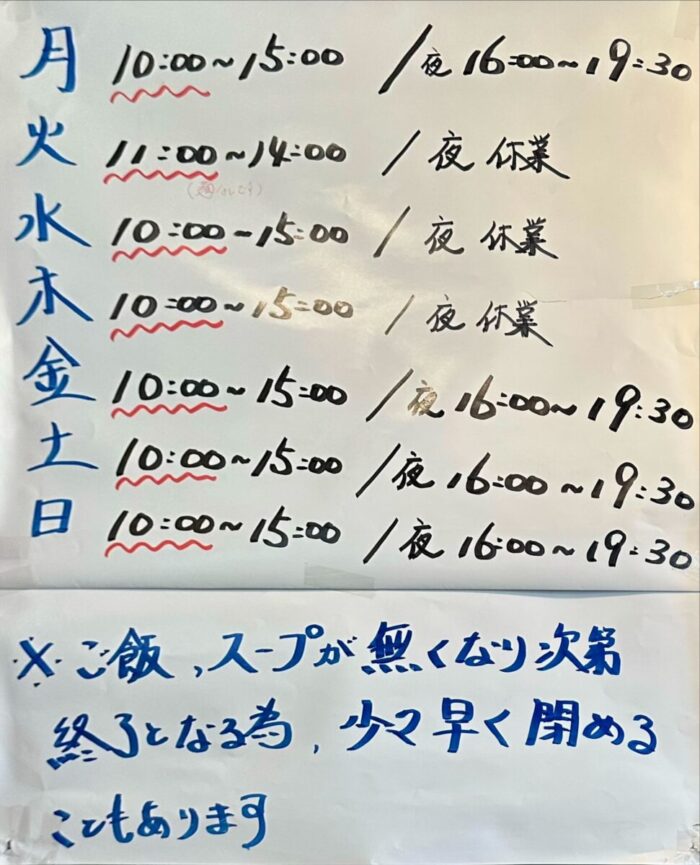 月 10:00~15:00 /夜 16:00~19:30
火 11:00~14:00 /夜 休業
水 10:00~15:00 /夜 休業
木 10:00~15:00 /夜 休業
金 10:00~15:00 /夜 16:00~19:30
土 10:00~15:00 /夜 16:00~19:30
日 10:00~15:00 /夜 16:00~19:30
※ご飯、スープが無くなり次第
終了となる為、少々早く閉める
こともあります